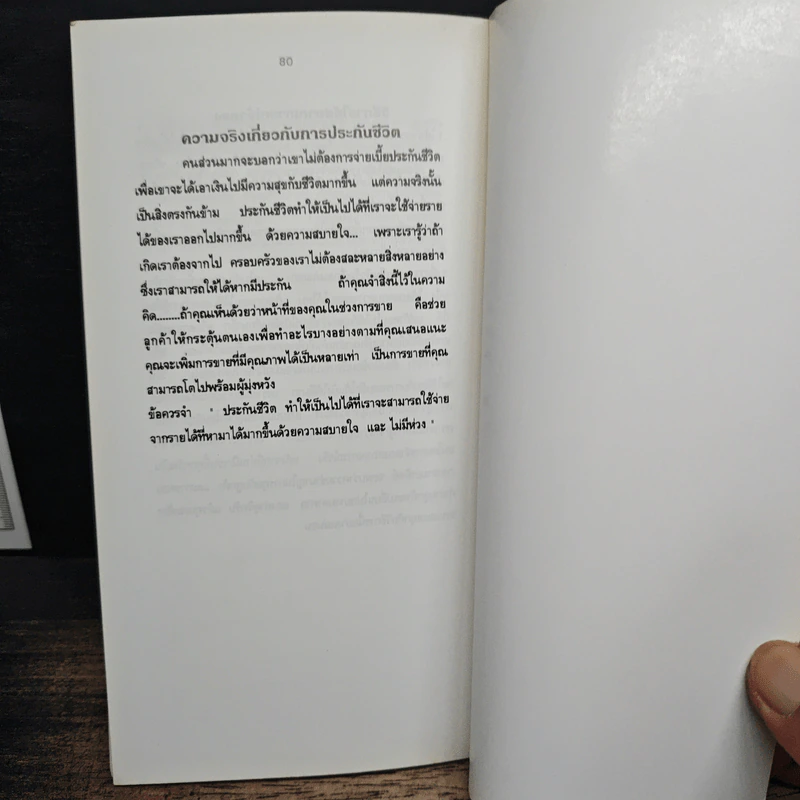 80
ความจริงเกี่ยวกับการประกันชีวิต
คนส่วนมากจะบอกว่าเขาไม่ต้องการจ่ายเบี้ยประกันชีวิต
เพื่อเขาจะได้เอาเงินไปมีความสุขกับชีวิตมากขึ้น แต่ความจริงนั้น
เป็นสิ่งตรงกันข้าม ประกันชีวิตทำให้เป็นไปได้ที่เราจะใช้จ่ายราย
ได้ของเราออกไปมากขึ้น ด้วยความสบายใจ... เพราะเรารู้ว่าถ้า
เกิดเราต้องจากไป ครอบครัวของเราไม่ต้องสละหลายสิ่งหลายอย่าง
ซึ่งเราสามารถให้ได้หากมีประกัน ถ้าคุณจำสิ่งนี้ไว้ในความ
คิด........ถ้าคุณเห็นด้วยว่าหน้าที่ของคุณในช่วงการขาย คือช่วย
ลูกค้าให้กระตุ้นตนเองเพื่อทำอะไรบางอย่างตามที่คุณเสนอแนะ
คุณจะเพิ่มการขายที่มีคุณภาพได้เป็นหลายเท่า เป็นการขายที่คุณ
สามารถโตไปพร้อมผู้มุ่งหวัง
ข้อควรจำ " ประกันชีวิต ทำให้เป็นไปได้ที่เราจะสามารถใช้จ่าย
จากรายได้ที่หามาได้มากขึ้นด้วยความสบายใจ และ ไม่มีห่วง "